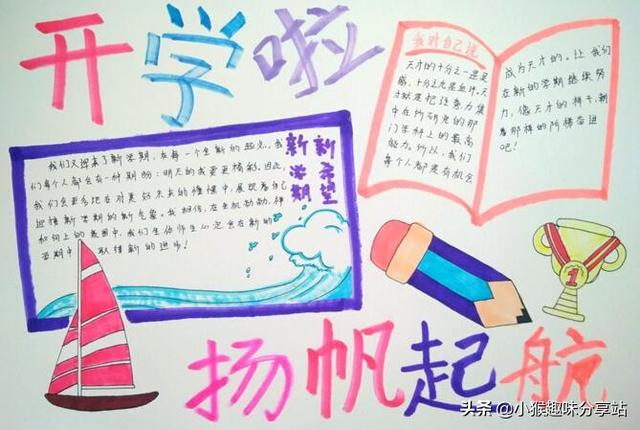 开学啦
我对自己说
天才的十分之一是灵
感，十分之九是血汗。天
才就是把注意力集
中在所研究的那
门学科上的最高
能力。所以，我们
每个人都是有机会
成为天才的。让我们
在新的学期继续努
力，像天才的样子，朝
着那样的阶梯奋进
吧！
我们又迎来了新学期，在每一个全新的起点，我
们每个人都会有一种期盼：明天的我要更精彩。因此，
我们会更多地在对美好未来的憧憬中，展现着自己
迎接新学期的新气象。我相信，在生机勃勃，神
如何上的氛围中，我们全体师生必定会在新的
学期中 取得新的进步！
新希望
新学期
1
扬帆起航
头条 @小猴趣味分享站